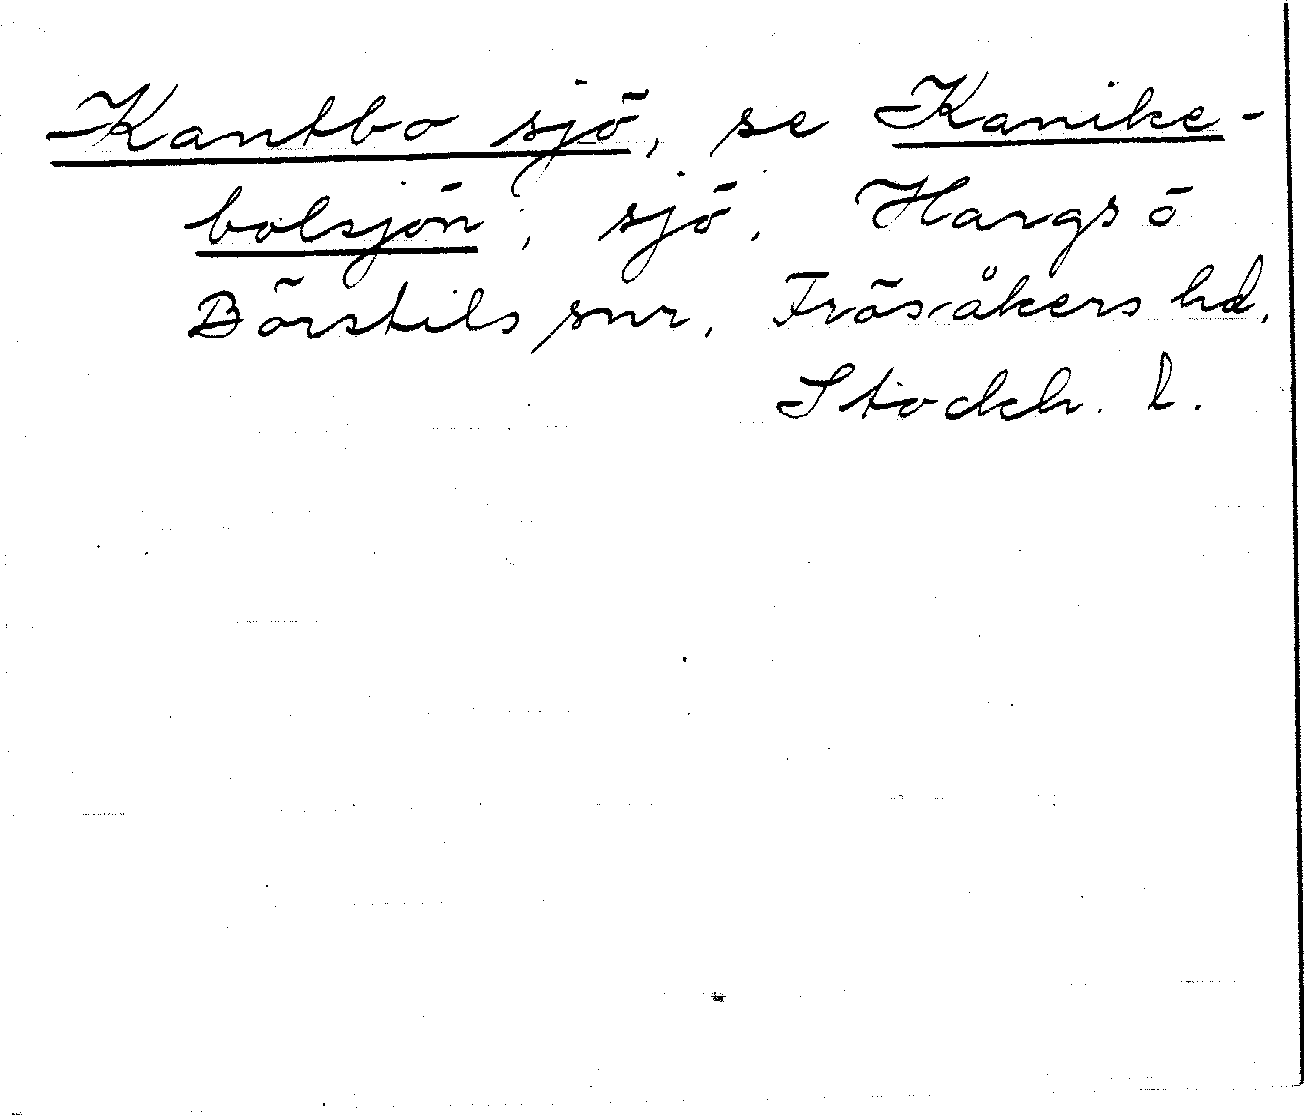 Kantbo sjö, se Kanike-
bolsjön, sjö, Hargs ö
Börstils snr, Frösåkers hd,
Stockh. l.